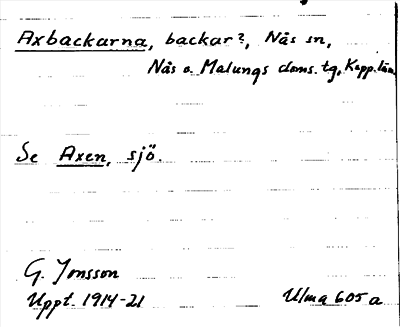 Axbackarna, backar?, Nås sn,
Nås o. Malungs doms. tg, Kopp. län
Se Axen, sjö.
G. Jonsson
Uppt. 1914-21 Ulma 605 a